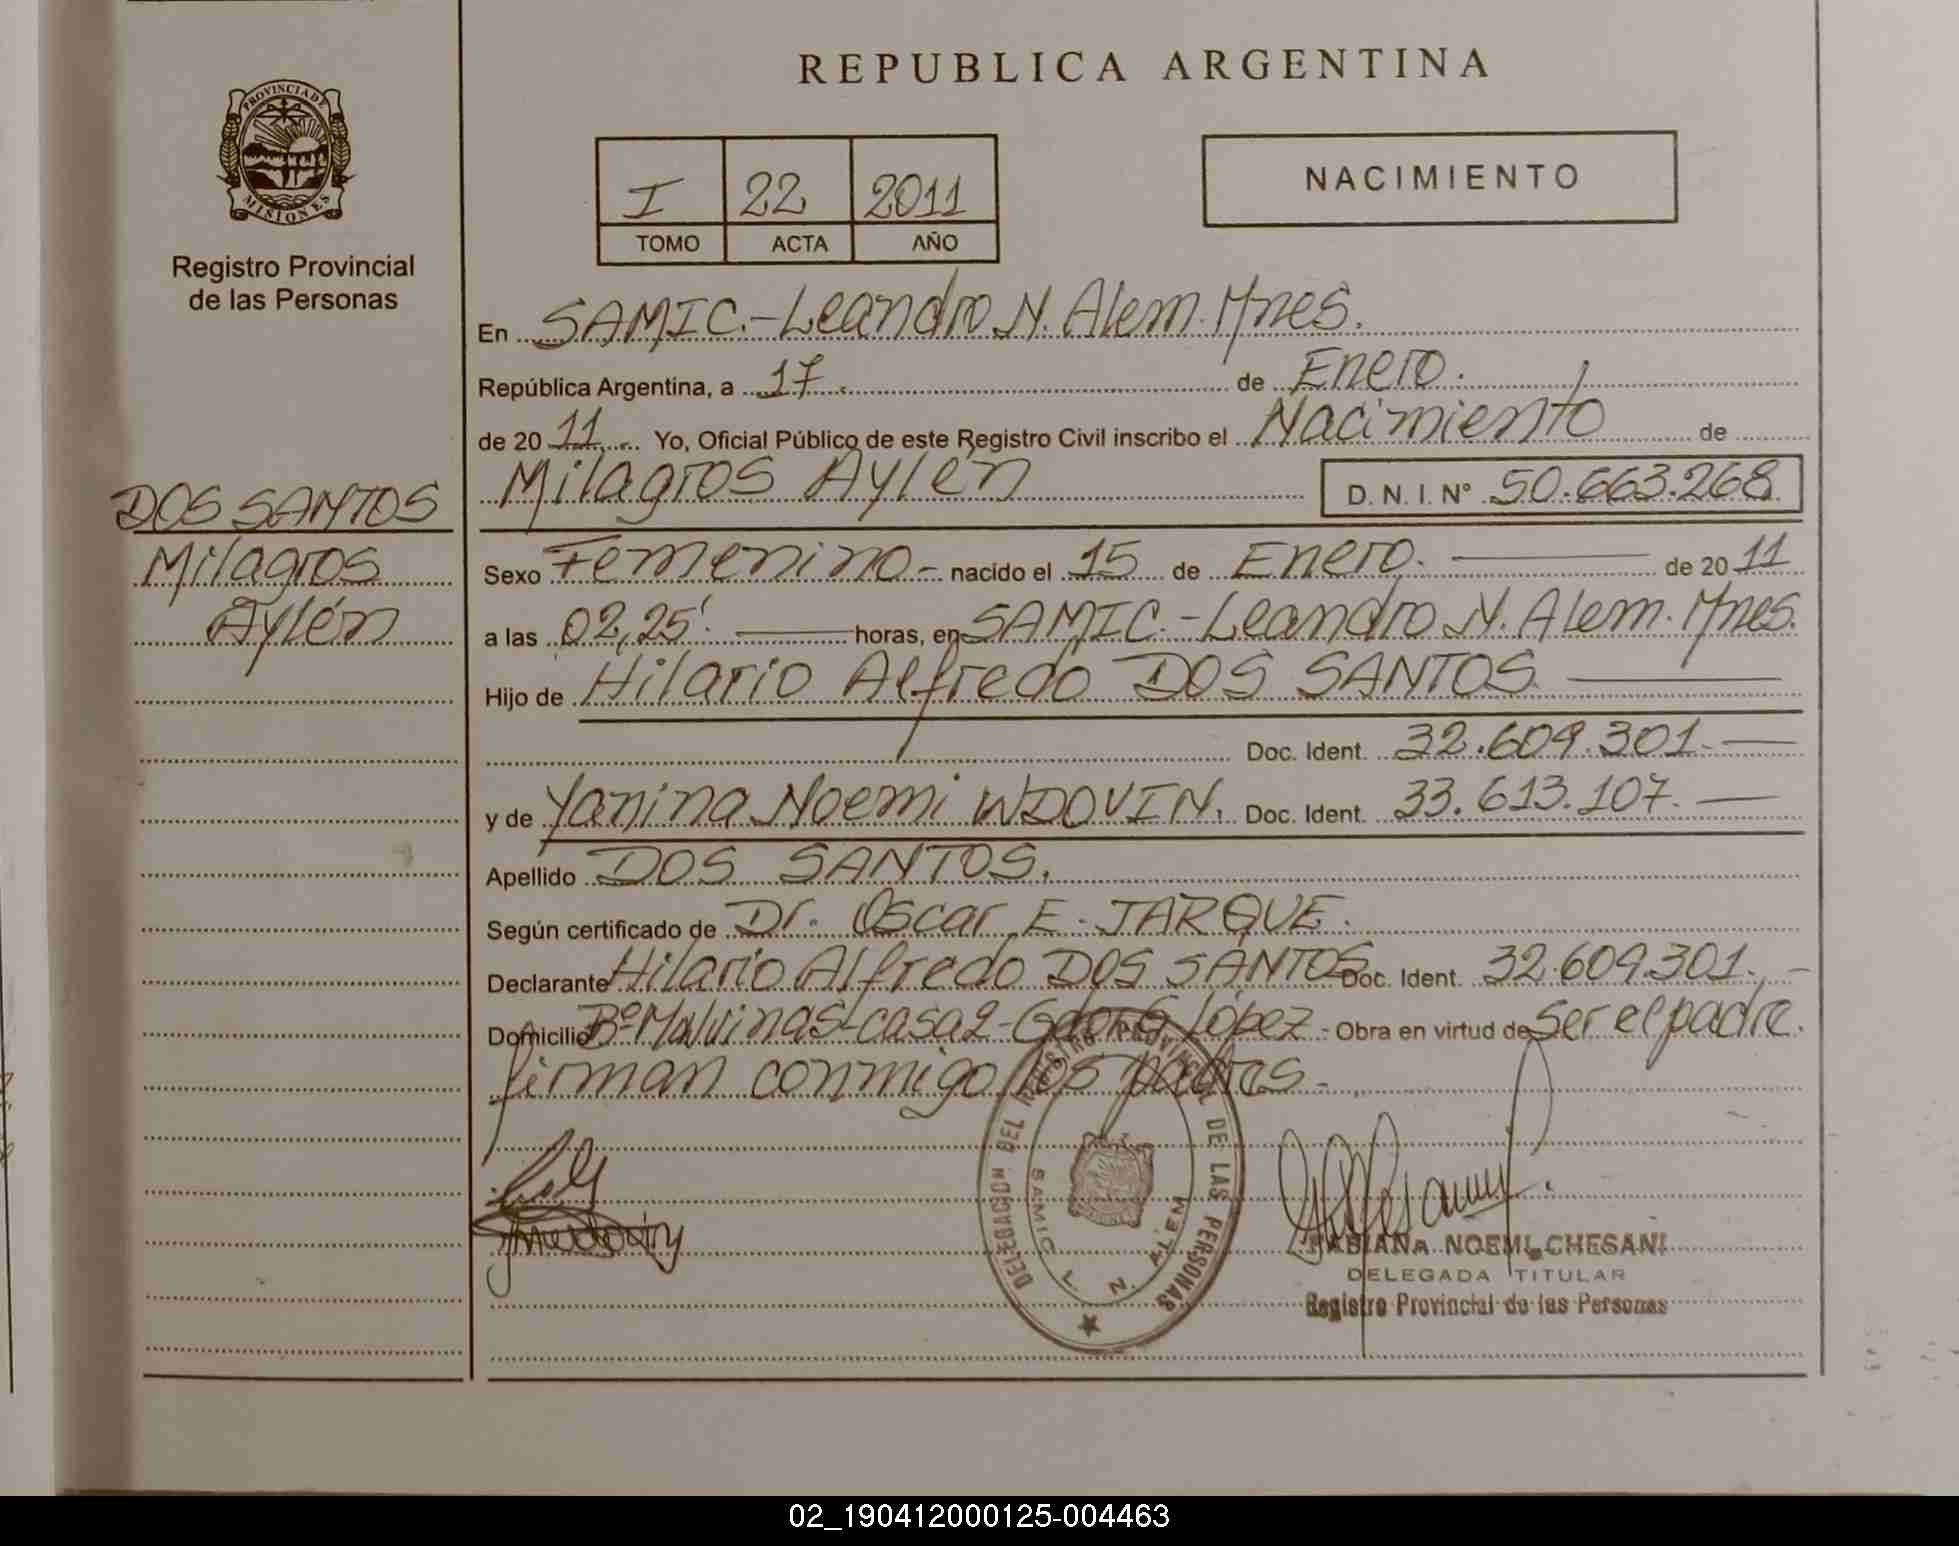 REPUBLICA ARGENTINA
PROVINCIA DE
MISIONES
Registro Provincial
de las Personas
I 22 2011
TOMO ACTA AÑO
NACIMIENTO
En SAMIC.-Leandro N. Alem. Mnes.
República Argentina, a 17. de Enero.
de 20 11 Yo, Oficial Público de este Registro Civil inscribo el Nacimiento de
Milagros Aylén D. N. I. N° 50.663.268
DOS SANTOS
Milagros
Aylén
Sexo Femenino.- nacido el 15 de Enero. de 20 11
a las 02,25' horas, en SAMIC.-Leandro N. Alem. Mnes.
Hijo de Hilario Alfredo DOS SANTOS
Doc. Ident. 32.609.301.
y de Yanina Noemi WDOVIN. Doc. Ident. 33.613.107.
Apellido DOS SANTOS.
Según certificado de Dr. Oscar E. JARQUE.
Declarante Hilario Alfredo DOS SANTOS Doc. Ident. 32.609.301.-
Domicilio B° Malvinas-casa 2- López.- Obra en virtud de ser el padre.
firman conmigo los padres.-
DELEGACION DEL REGISTRO PROVINCIAL DE LAS PERSONAS
SAMIC L. N. ALEM
FABIANA NOEMI CHESANI
DELEGADA TITULAR
Registro Provincial de las Personas
02_190412000125-004463